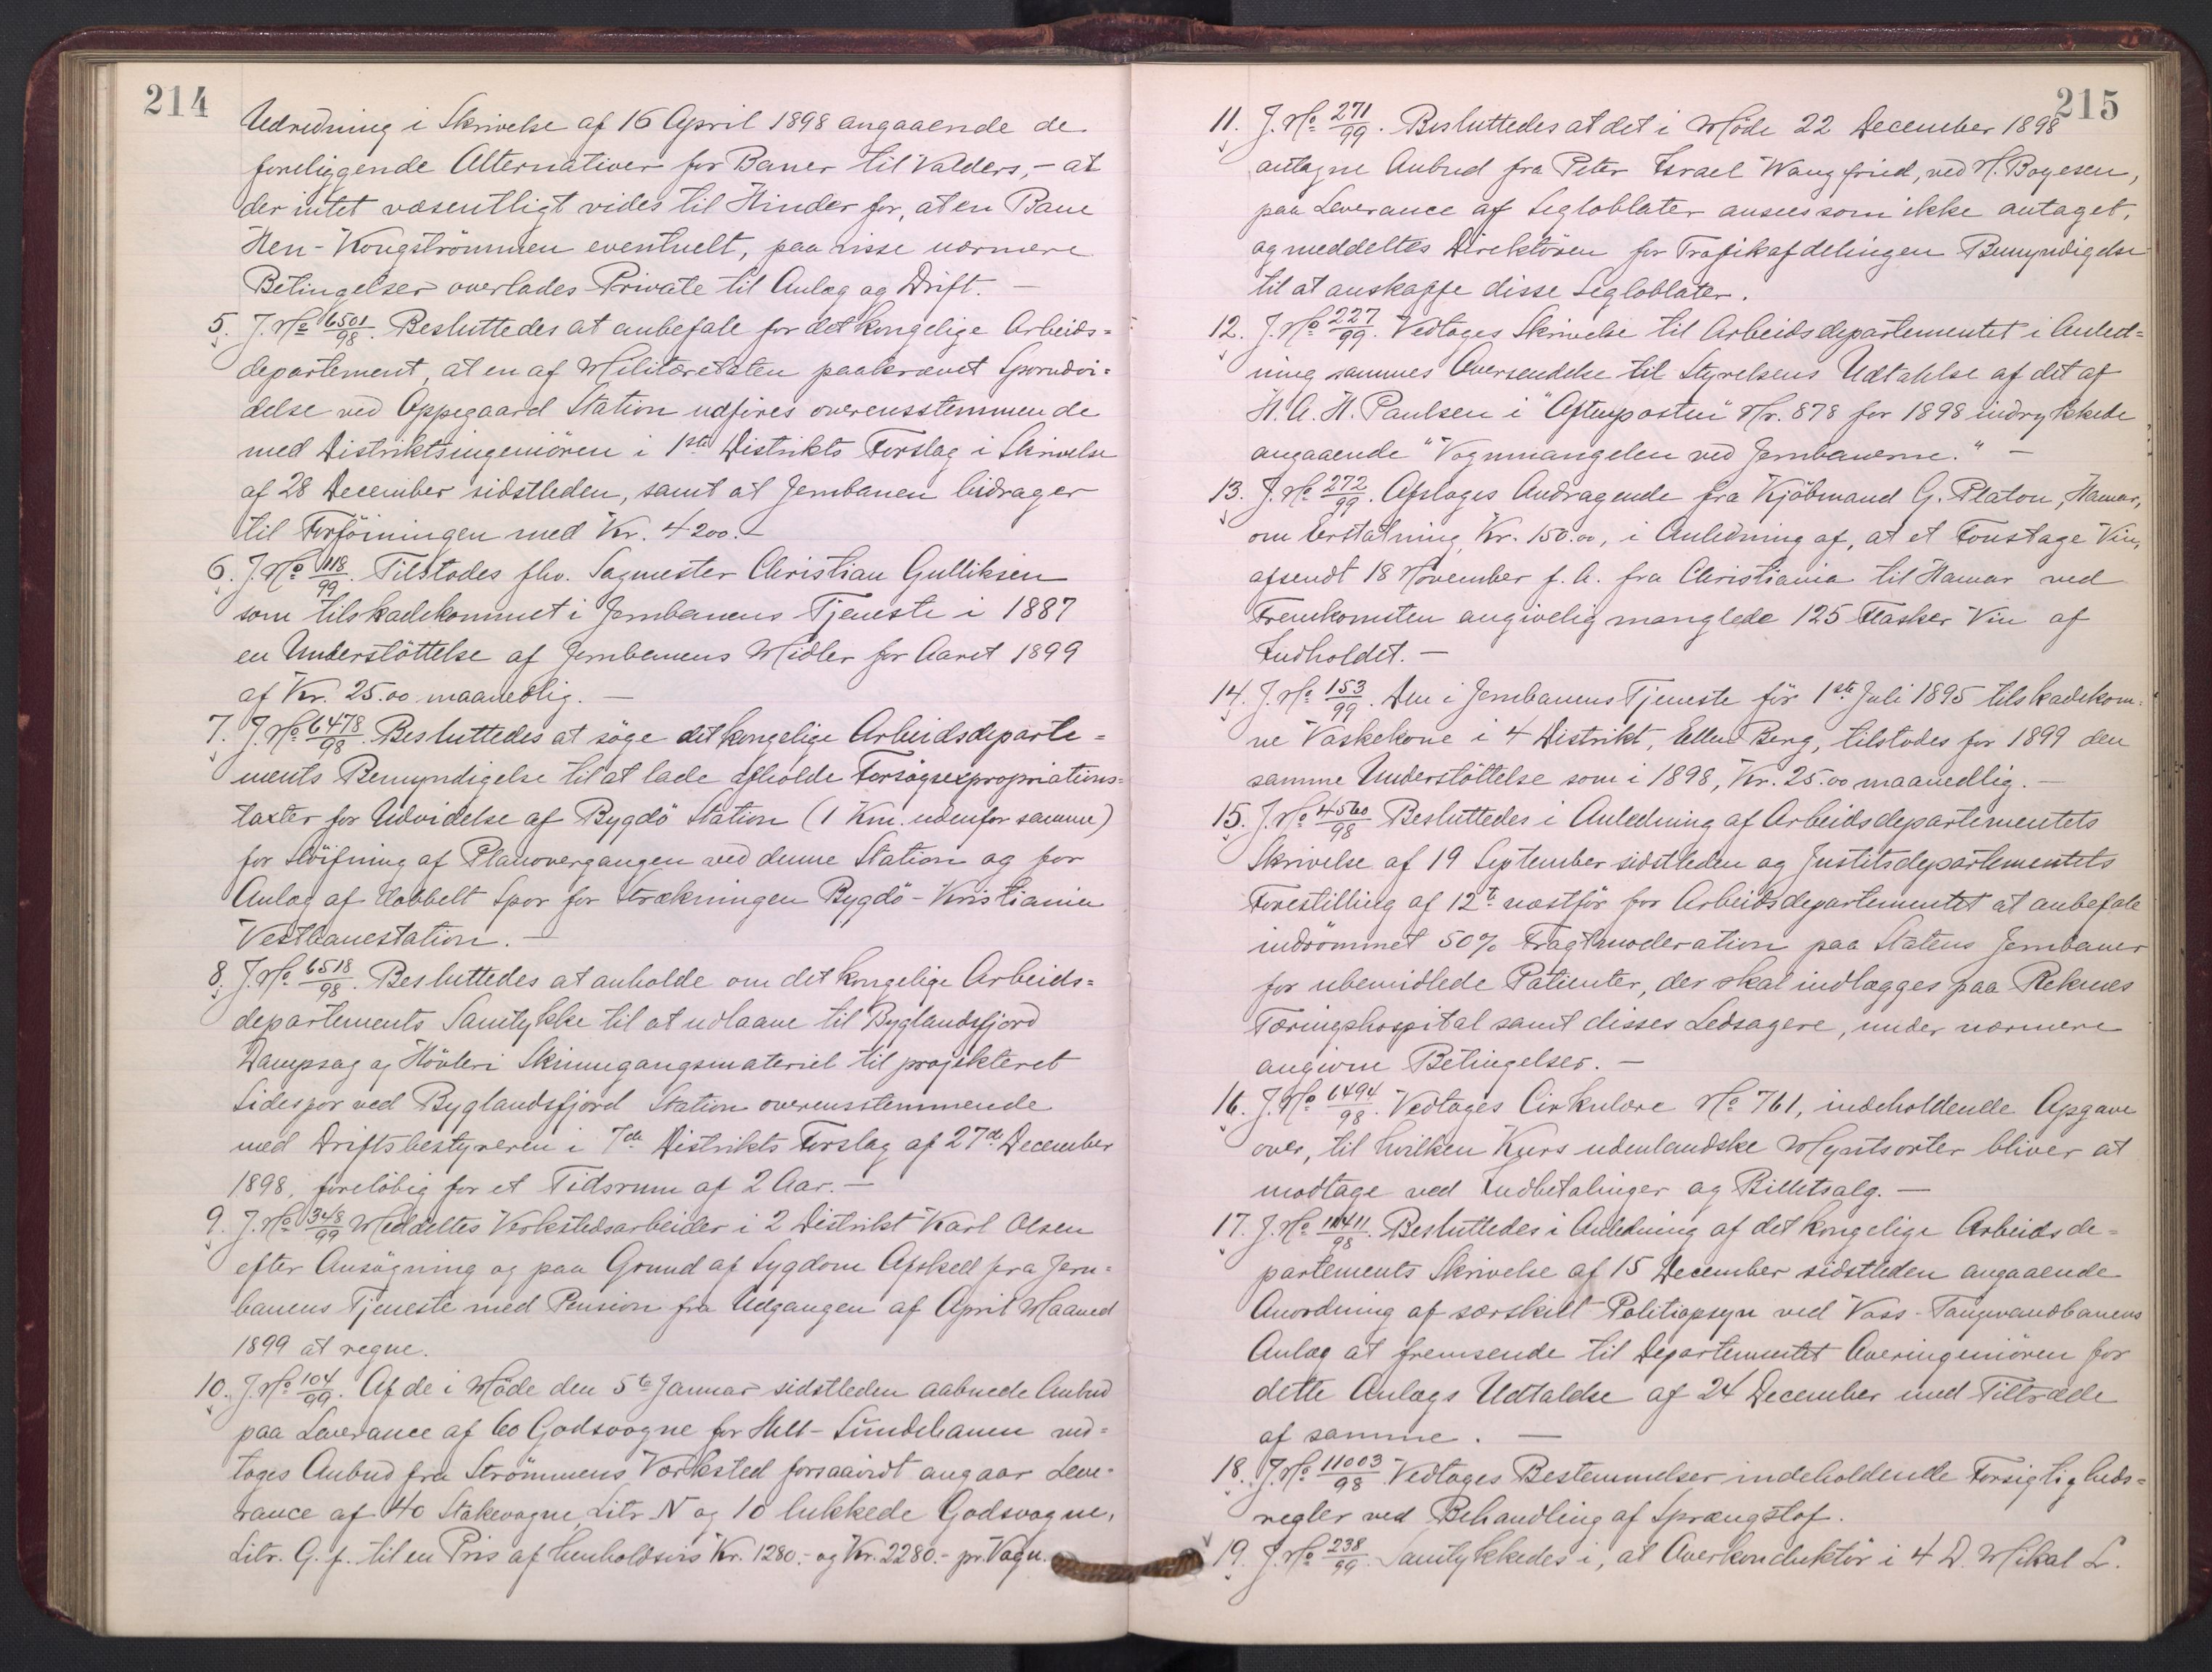 214
Udredning i Skrivelse af 16 April 1898 angaaende de
foreliggende Alternativer for Baner til Valders, - at
der intet væsentligt vides til Hinder for, at en Bane
Hen - Kongströmmen eventuelt, paa visse nærmere
Betingelser overlades Private til Anlæg og Drift. -
5. J. No 6501/98. Besluttedes at anbefale for det kongelige Arbeids=
departement, at en af Militæretaten paakrævet Sporudvi=
delse ved Oppegaard Station udföres overensstemmende
med Distriktsingeniören i 1ste Distrikts Forslag i Skrivelse
af 28 December sidstleden, samt at Jernbanen bidrager
til Forföiningen med Kr. 4200.-
6. J. No 118/99. Tilstodes fhv. Sagmester Christian Gulliksen
som tilskadekommet i Jernbanens Tjeneste i 1887
en Understöttelse af Jernbanens Midler for Aaret 1899
af Kr. 25.00 maanedlig. -
7. J. No 6478/98. Besluttedes at söge det kongelige Arbeidsdeparte=
ments Bemyndigelse til at lade afholde Forsögsexpropriations=
taxter for Udvidelse af Bygdö Station (1 Km. udenfor samme)
for Slöifning af Planovergangen ved denne Station og for
Anlæg af dobbelt Spor for Strækningen Bygdö - Kristiania
Vestbanestation. -
8. J. No 6518/98. Besluttedes at anholde om det kongelige Arbeids=
departements Samtykke til at udlaane til Byglandsfjord
Dampsag og Hövleri Skinnegangsmateriel til projekteret
Sidespor ved Byglandsfjord Station overensstemmende
med Driftsbestyreren i 7de Distrikts Forslag af 27de December
1898, foreløbig for et Tidsrum af 2 Aar. -
9. J. No 348/99 Meddeltes Verkstedsarbeider i 2 Distrikt Karl Olsen
efter Ansögning og paa Grund af Sygdom Afsked fra Jern=
banens Tjeneste med Pension fra Udgangen af April Maaned
1899 at regne.
10. J. No 104/99. Af de i Möde den 5te Januar sidstleden aabnede Anbud
paa Leverance af 60 Godsvogne for Hell - Sundebanen ved=
toges Anbud fra Strömmens Værksted forsaavidt angaar Leve=
rance af 40 Stakevogne, Litr. N og 10 lukkede Godsvogne,
Litr. G. f. til en Pris af henholdsvis Kr. 1280.- og Kr. 2280.- pr. Vogn.
215
11. J. No 271/99. Besluttedes at det i Möde 22 December 1898
antagne Anbud fra Peter Israel Wangfried, ved N. Boyesen,
paa Leverance af Segloblater ansees som ikke antaget,
og meddeltes Direktören for Trafikafdelingen Bemyndigelse
til at anskaffe disse Segloblater.
12. J. No 227/99. Vedtoges Skrivelse til Arbeidsdepartementet i Anled=
ning sammes Oversendelse til Styrelsens Udtalelse af det af
H. A. H. Paulsen i "Aftenposten" Nr. 878 for 1898 indrykkede
angaaende "Vognmangelen ved Jernbanerne." -
13. J. No 272/99. Afsloges Andragende fra Kjöbmand G. Platou, Hamar,
om Erstatning, Kr. 150.00, i Anledning af, at et Foustage Vin,
afsendt 18 November f. A. fra Christiania til Hamar ved
Fremkomsten angivelig manglede 125 Flasker Vin af
Indholdet. -
14. J. No 153/99. Den i Jernbanens Tjeneste för 1ste Juli 1895 tilskadekom=
ne Vaskekone i 4 Distrikt, Ellen Berg, tilstodes for 1899 den
samme Understöttelse som i 1898, Kr. 25.00 maanedlig. -
15. J. No 4560/98 Besluttedes i Anledning af Arbeidsdepartementets
Skrivelse af 19 September sidstleden og Justitsdepartementets
Forestilling af 12te næstför for Arbeidsdepartementet at anbefale
indrömmet 50% Fragtmoderation paa Statens Jernbaner
for ubemidlede Patienter, der skal indlægges paa Reknes
Tæringshospital samt disses Ledsagere, under nærmere
angivne Betingelser. -
16. J. No 6494/98. Vedtoges Cirkulære No 761, indeholdende Opgave
over, til hvilken Kurs udenlandske Myntsorter bliver at
modtage ved Indbetalinger og Billetsalg. -
17. J. No 11411/98. Besluttedes i Anledning af det kongelige Arbeidsde=
partements Skrivelse af 15 December sidstleden angaaende
Anordning af særskilt Politiopsyn ved Voss - Taugevandbanens
Anlæg at fremsende til Departementet Overingeniören for
dette Anlægs Udtalelse af 24 December med Tiltræde
af samme. -
18. J. No 11003/98. Vedtoges Bestemmelser indeholdende Forsigtigheds=
regler ved Behandling af Sprængstof.
19. J. No 238/99. Samtykkedes i, at Overkonduktör i 4 D. Mikal L.